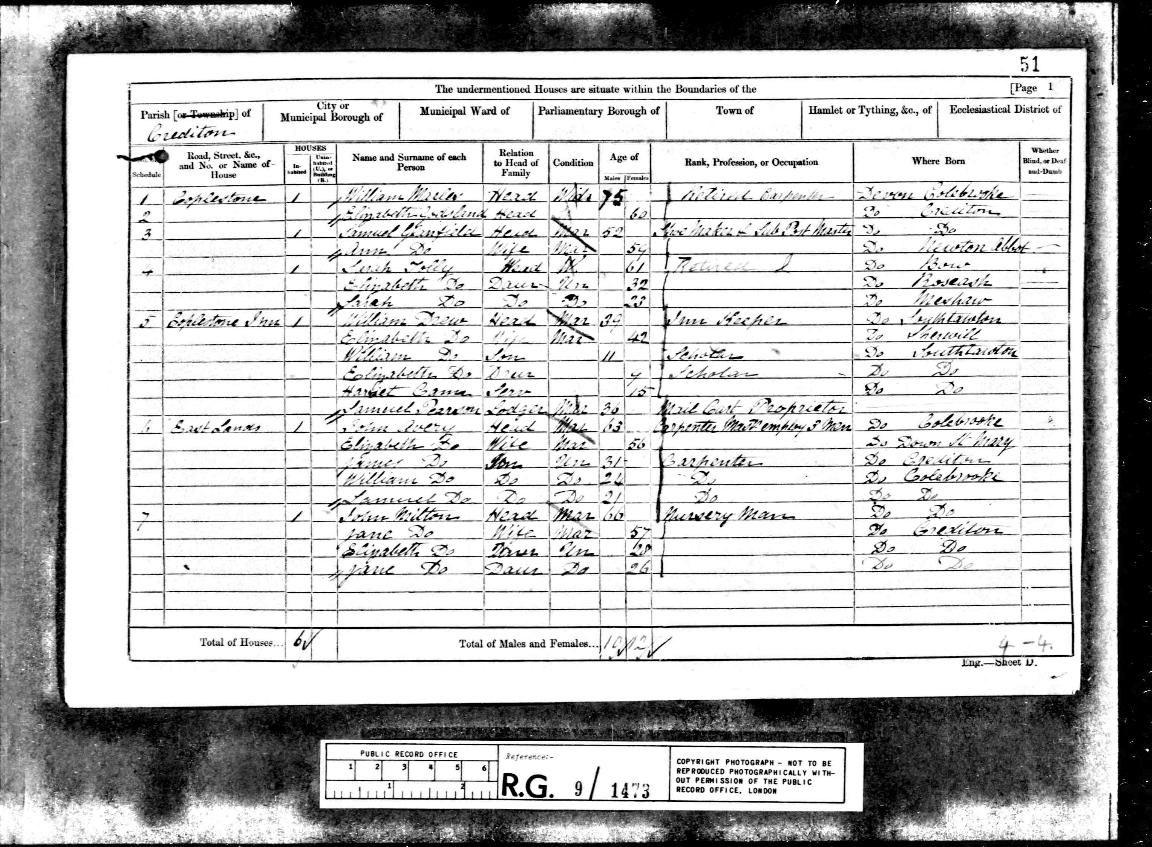 51
The undermentioned Houses are situate within the Boundaries of the [Page 1
Parish [or Township] of City or Municipal Borough of Municipal Ward of Parliamentary Borough of Town of Hamlet or Tything, &c., of Ecclesiastical District of
Crediton
Schedule Road, Street, &c., and No. or Name of House HOUSES Inhabited Uninhabited (U.), or Building (B.) Name and Surname of each Person Relation to Head of Family Condition Age of Males Females Rank, Profession, or Occupation Where Born Whether Blind, or Deaf and-Dumb
1 Coplestone 1 William Head 75 Retired Carpenter Devon Colebrooke
2 Elizabeth Head 60 Do Crediton
3 1 Samuel Head Mar 52 Maker & Sub Post Master Do Do
Ann Do Wife Mar 59 Do Newton Abbot
4 1 Sarah Jolly Head W 61 Retired Do Bow
Elizabeth Do Daur Un 32 Do Roseash
Sarah Do Do Do 23 Do Meshaw
5 Coplestone Inn 1 William Drew Head Mar 39 Inn Keeper Do Southtawton
Elizabeth Do Wife Mar 42 Do Sherwill
William Do Son 11 Scholar Do Southtawton
Elizabeth Do Daur 7 Scholar Do Do
Harriet Serv 15 Do Do
Samuel Pearson Lodger Mar 30 Mail Cart Proprietor
6 East Lands 1 John Avery Head Mar 63 Carpenter employ 3 Men Do Colebrooke
Elizabeth Do Wife Mar 56 Do Down St Mary
James Do Son Un 31 Carpenter Do Crediton
William Do Do Do 24 Do Do Colebrooke
Samuel Do Do Do 21 Do Do Do
7 1 John Milton Head Mar 66 Nursery Man Do Do
Jane Do Wife Mar 57 Do Crediton
Elizabeth Do Daur Un 28 Do Do
Jane Do Daur Do 26 Do Do
Total of Houses... 6 Total of Males and Females... 10 12
4-4.
Eng.—Sheet D.
PUBLIC RECORD OFFICE
1 2 3 4 5 6
1 2
Reference:-
R.G. 9/1473
COPYRIGHT PHOTOGRAPH - NOT TO BE
REPRODUCED PHOTOGRAPHICALLY WITH-
OUT PERMISSION OF THE PUBLIC
RECORD OFFICE, LONDON